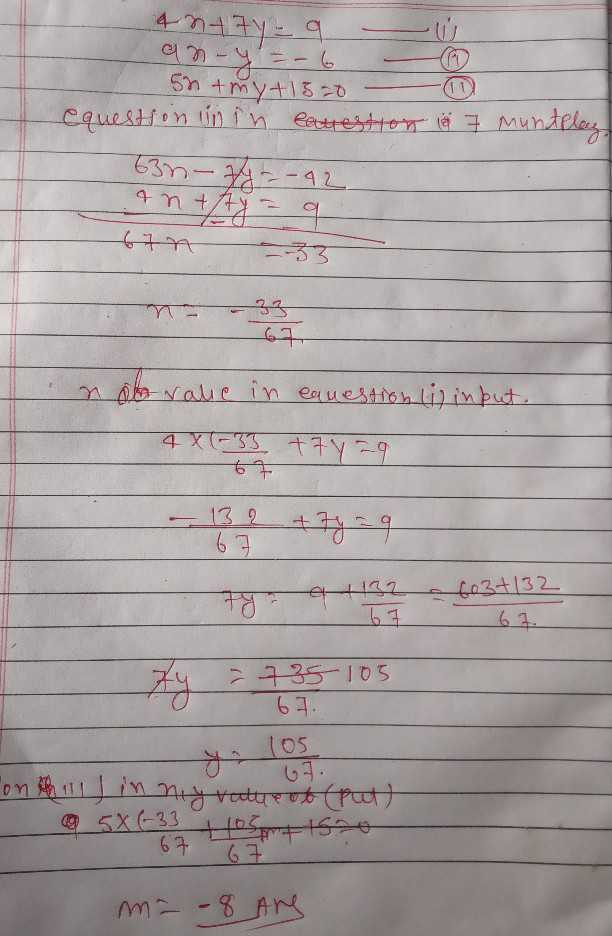 4x+7y=9 — (i)
9x-y=-6 — (ii)
5x+my+15=0 — (iii)
equestion (ii) in 7 muntplay
63x-7y=-42
4x+7y=9
67x =-33
x= -33/67
x value in equestion (i) input.
4×(-33/67 +7y=9
-132/67 +7y=9
7y= 9+132/67 = 603+132/67.
7y = 735 105/67.
y= 105/67.
on (iii) in x,y value of (put)
5×(-33/67 + 105/67 m+15=0
m= -8 Ans